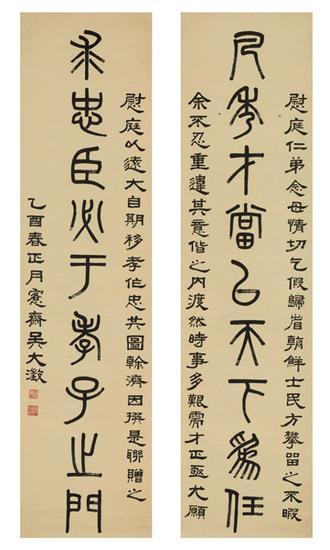 慰庭仁弟念母情切乞假歸省朝鮮士民方攀畱之不暇
凡秀才當㠯天下爲任
余不忍重違其意偕之內渡然時事多艱需才正亟尤願
慰庭以遠大自期移孝作忠共圖幹濟因撰是聯贈之
求忠臣必于孝子之門
乙酉春正月愙齋吳大澂